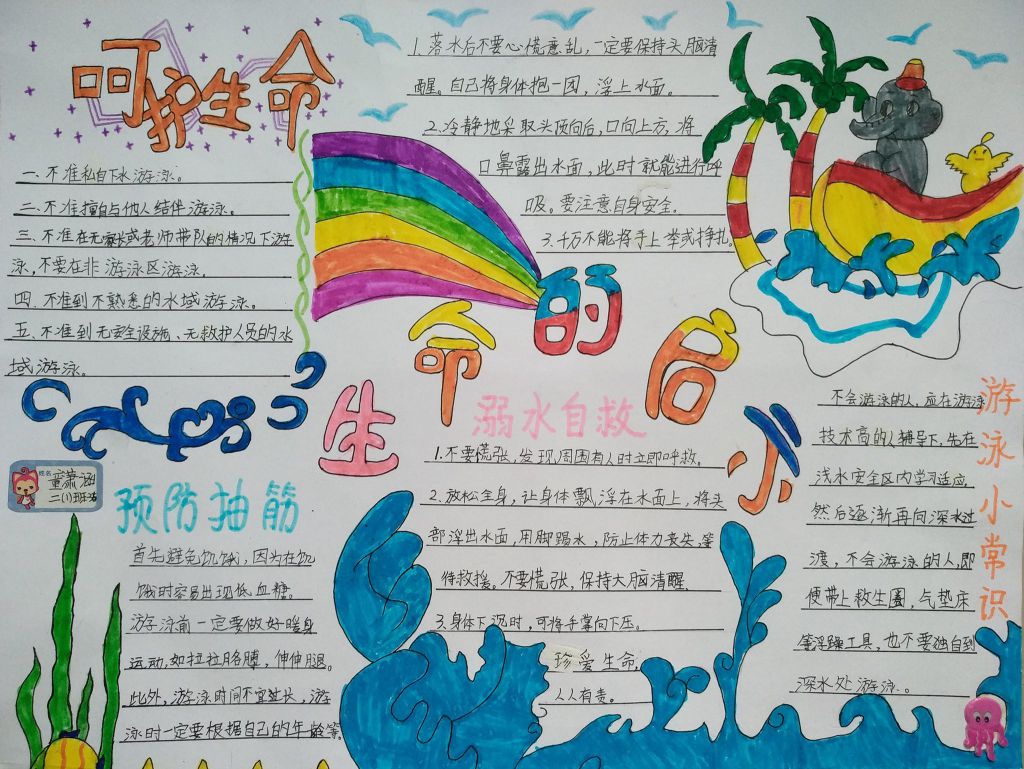 呵护生命
一.不准私自下水游泳。
二.不准擅自与他人结伴游泳。
三.不准在无家长或老师带队的情况下游
泳,不要在非游泳区游泳.
四.不准到不熟悉的水域游泳。
五.不准到无安全设施、无救护人员的水
域游泳。
1.落水后不要心慌意乱,一定要保持头脑清
醒。自己将身体抱一团,浮上水面。
2.冷静地采取头顶向后,口向上方,将
口鼻露出水面,此时就能进行呼
吸。要注意自身安全。
3.千万不能将手上举或挣扎。
生命的
溺水自救
1.不要慌张,发现周围有人时立即呼救。
2.放松全身,让身体飘浮在水面上,将头
部浮出水面,用脚踢水,防止体力丧失,等
待救援。不要慌张,保持大脑清醒.
3.身体下沉时,可将手掌向下压。
珍爱生命,
人人有责。
姓名
童潇涵
二(1)班
预防抽筋
首先避免饥饿,因为在饥
饿时容易出现低血糖。
游泳前一定要做好暖身
运动,如拉拉胳膊,伸伸腿。
此外,游泳时间不宜过长,游
泳时一定要根据自己的年龄等.
游泳小常识
不会游泳的人,应在游泳
技术高的人辅导下,先在
浅水安全区内学习适应,
然后逐渐再向深水过
渡,不会游泳的人,即
便带上救生圈,气垫床
等浮躁工具,也不要独自到
深水处游泳.。